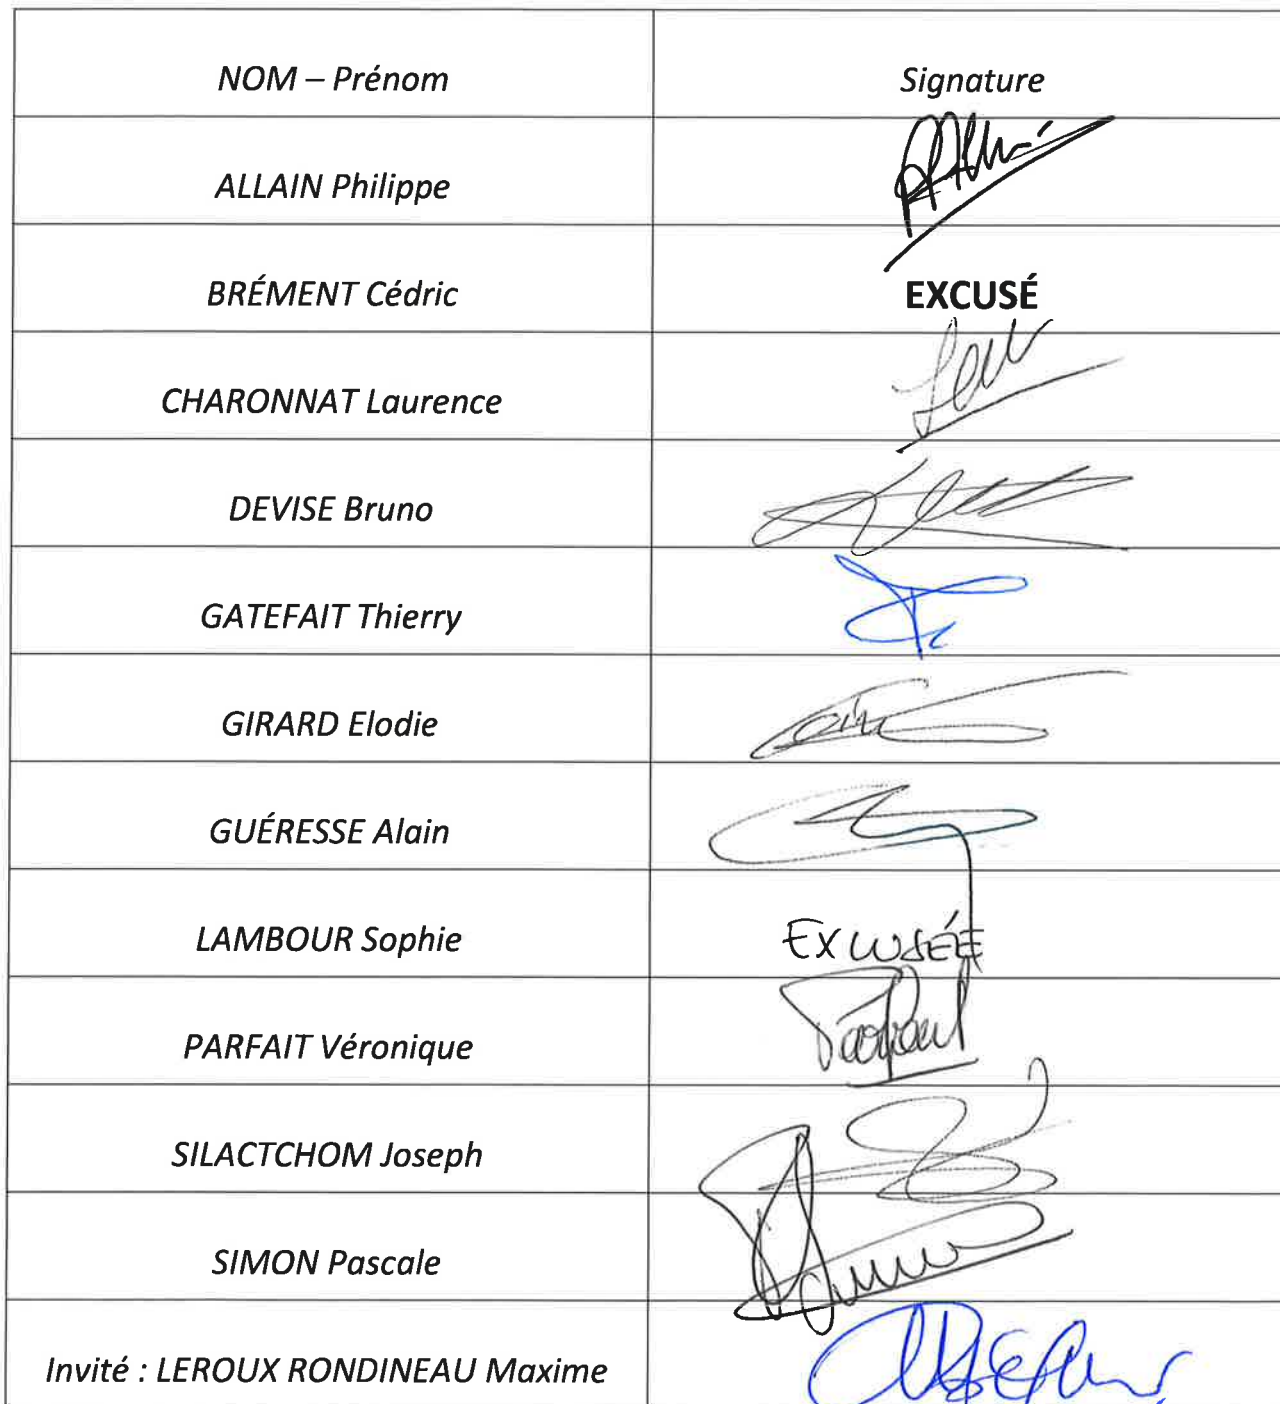 NOM – Prénom
Signature
ALLAIN Philippe
BRÉMENT Cédric
EXCUSÉ
CHARONNAT Laurence
DEVISE Bruno
GATEFAIT Thierry
GIRARD Elodie
GUÉRESSE Alain
LAMBOUR Sophie
EXCUSÉE
PARFAIT Véronique
SILACTCHOM Joseph
SIMON Pascale
Invité : LEROUX RONDINEAU Maxime